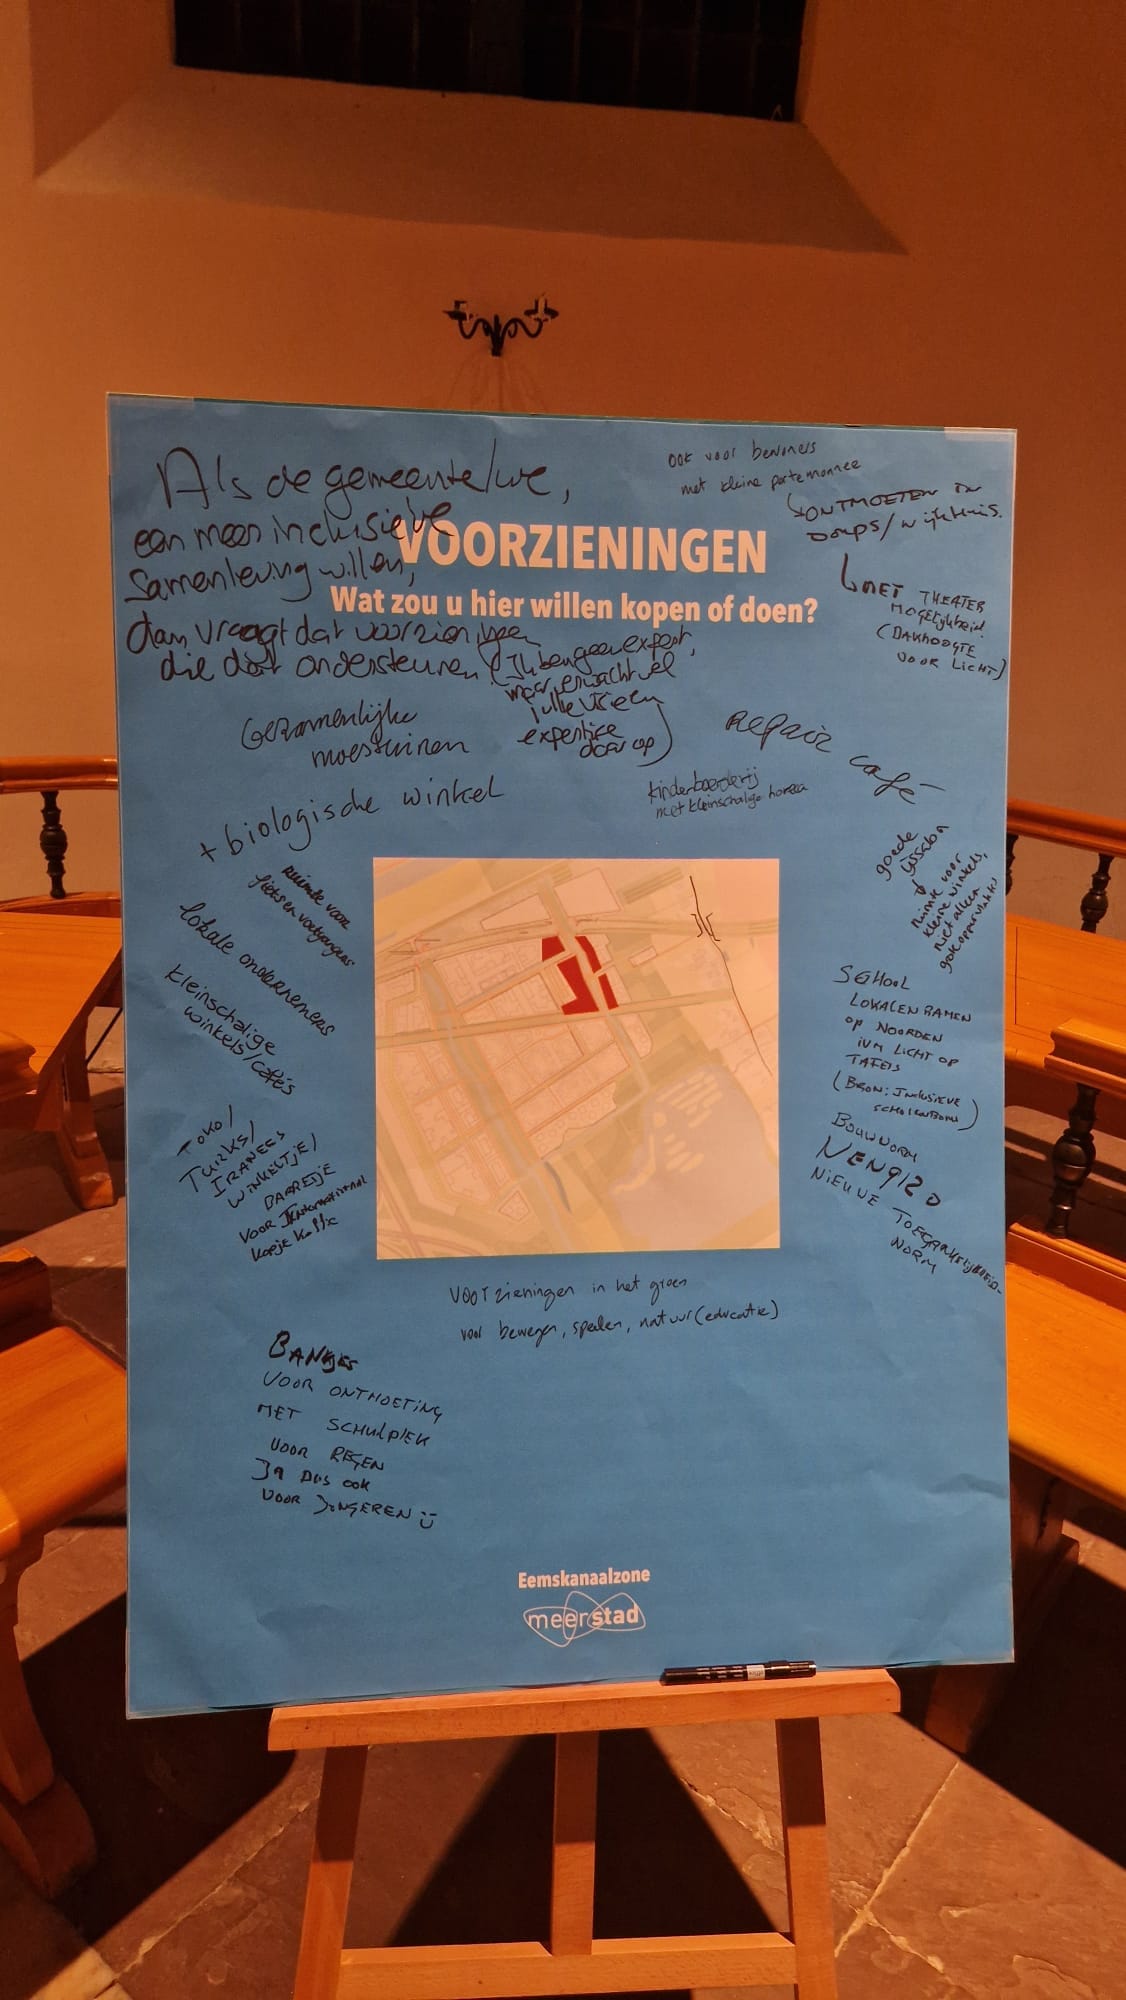 Als de gemeente/we,
een meer inclusieve
samenleving willen,
dan vraagt dat voorzieningen
die dat ondersteunen.
(Ik ben geen expert,
maar verwacht wel
jullie
expertise
daarop)
ook voor bewoners
met kleine portemonnee
ONTMOETEN IN
DORPS/wijkhuis.
MET THEATER
MOGELIJKHEID
(DAKHOOGTE
VOOR LICHT)
VOORZIENINGEN
Wat zou u hier willen kopen of doen?
Gezamenlijke
moestuinen
Repair café
+ biologische winkel
kinderboerderij
met kleinschalige horeca
ruimte voor
fietsen voetgangers
goede
ijssalon
ruimte voor
kleine winkels,
niet alleen
grote oppervlaktes
lokale ondernemers
kleinschalige
winkels/cafés
SCHOOL
LOKALEN RAMEN
OP NOORDEN
IVM LICHT OP
TAFELS
(BRON: INCLUSIEVE
SCHOLENBOUW)
TOKO/
TURKS/
IRANEES
WINKELTJE/
BARRETJE
VOOR INTERNATIONAAL
KOPJE KOFFIE
BOUWNORM
NEN9120
NIEUWE TOEGANKELIJKHEID-
NORM
voorzieningen in het groen
voor bewegen, spelen, natuur(educatie)
BANKJES
VOOR ONTMOETING
MET SCHUILPLEK
VOOR REGEN
JA DUS OOK
VOOR JONGEREN
Eemskanaalzone
meerstad